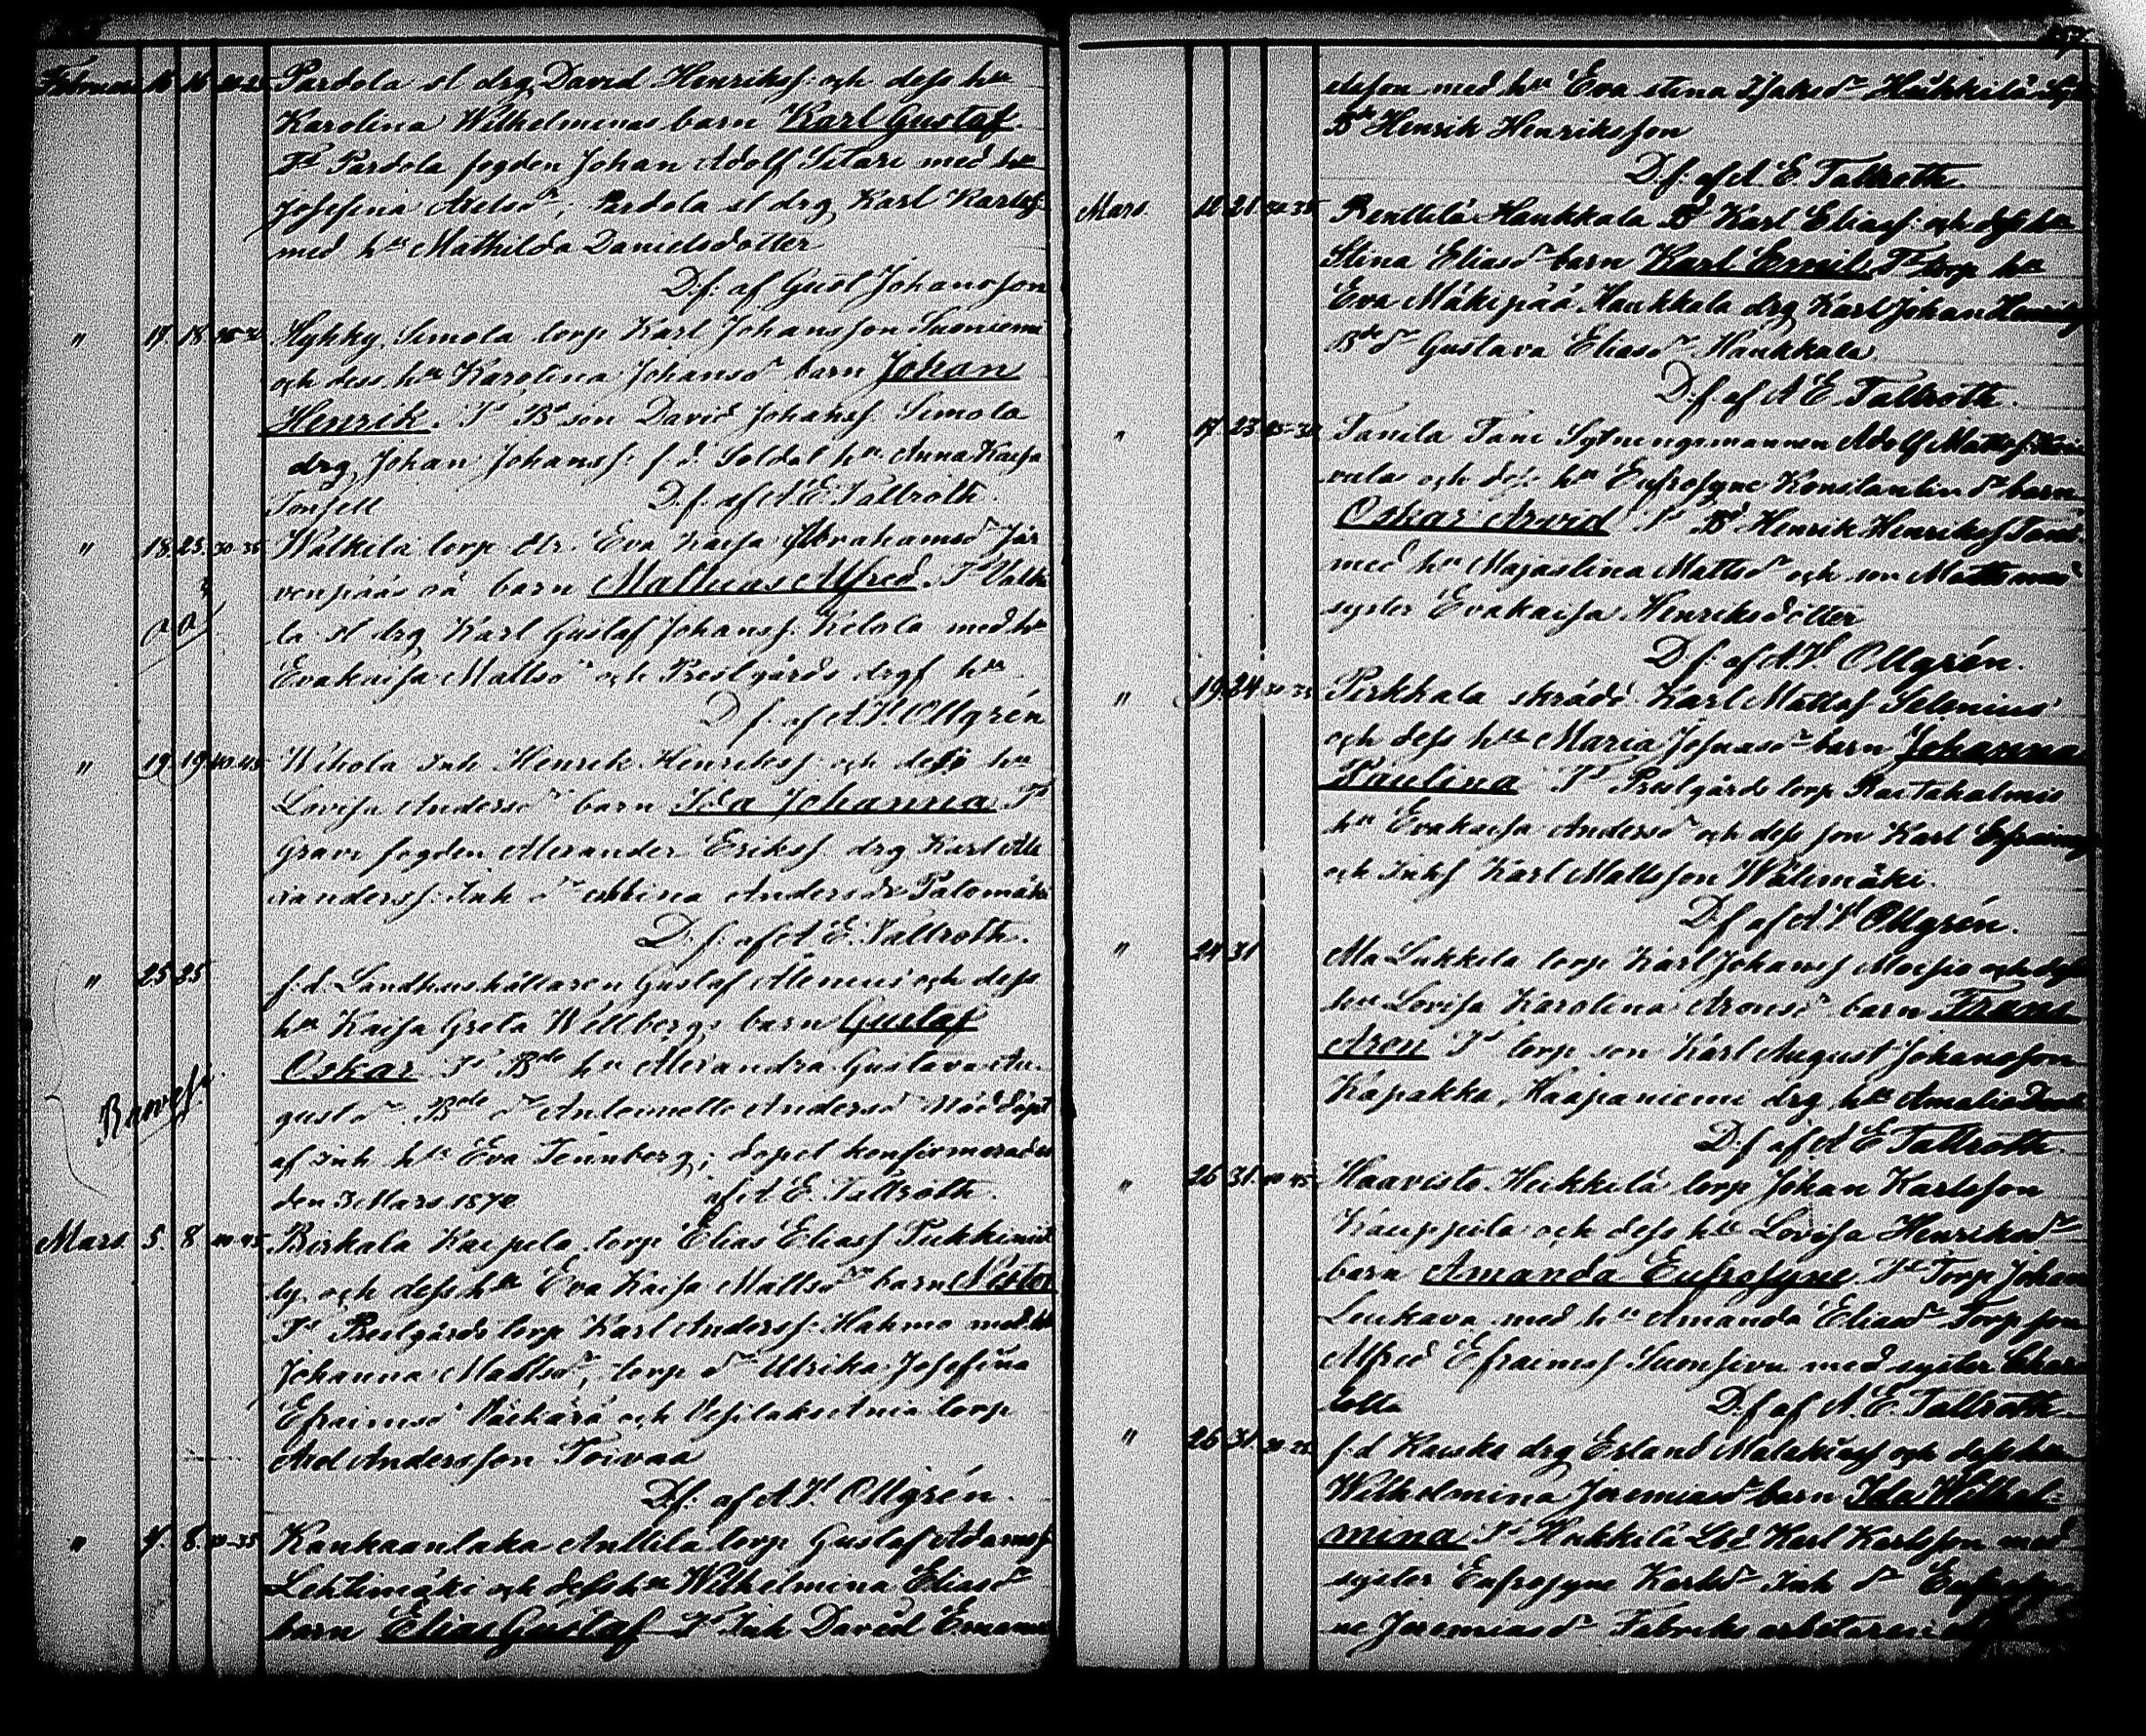 Februari 16 16 20-25 Pardola sl drg David Henrikss: och dess hu
Karolina Wilhelminas barn Karl Gustaf.
Ft Pardola fogden Johan Adolf Sitari med hu
Josefina Axelsdr; Pardola sl drg Karl Karlss:
med hu Mathilda Danielsdotter
D:f: af Gust Johansson
" 17 18 Hykky Simola torp Karl Johansson Suoniemi
och dess hu Karolina Johansdr barn Johan
Henrik. Ft Bd son David Johanss: Simola
drg Johan Johanss: f. d. Soldat hu Anna Kaisa
Tonfell D.f. af A E. Tallroth.
" 18 25 30-35 Walkila torp dr. Eva Kaisa Abrahamsdr Jär
venpääs oä barn Mathias Alfred. Ft Valki
la sl drg Karl Gustaf Johanss: Kilola med hu
Evakaisa Mattsdr och Prestgårds drgs hu
D f. af A F. Ollgrén
" 19 19 40-45 Wihola Inh Henrik Henrikss: och dess hu
Lovisa Andersdr barn Ida Johanna Ft
Grawe fogden Alexander Erikss: drg Karl Ale
xanderss: Inh dr Albina Andersdr Palomäki
D. f: af A E. Tallroth.
" 25 25 f. d. Landthushållaren Gustaf Alenius och dess
hu Kaisa Greta Wellbergs barn Gustaf
Oskar Ft Bde hu Alexandra Gustava Au-
gustdr. Bde dr Antoinette Andersdr Nöddöpt
af Inh hu Eva Tennberg; dopet konfirmerades
den 3 Mars 1870 af A E. Tallroth.
Mars. 5. 8. 40-45 Birkala Kaipila torp Elias Eliass
och dess hu Eva Kaisa Mattsdr barn Nestor
Ft Prestgårds torp Karl Anderss: Hahmo med hu
Johanna Mattsdr, torp dr Ulrika Josefina
Efraimsdr och Vesilaks Ania torp
Axel Andersson Toivaa
D.f: af A F. Ollgrén.
" 7. 8. 30-35 Kankaantaka Anttila torp Gustaf Adamss:
Lehtimäki och dess hu Wilhelmina Eliasdr
barn Elias Gustaf Ft Inh David Emanu
elsson med hu Eva Stina Isaksdr Heikkilä
Bde Henrik Henriksson
D.f. af A. E. Tallroth
Mars. 18 21 30-35 Penttilä Haukkala Bd Karl Eliass: och dess hu
Stina Eliasdr barn Karl Emil Ft torp hu
Eva Mäkipää Haukkala drg Karl Johan Henrikss
Bde dr Gustava Eliasdr Haukkala
D.f. af A E. Tallroth.
" 17 23 25-30 Tanila Tani Sytningsmannen Adolf Mattss:
och dess hu Eufrosyne Konstantindr barn
Oskar Arvid Ft Bd Henrik Henrikss Tani
med hu Majastina Mattsdr och son Matts med
syster Evakaisa Henriksdotter
D f. af A F. Ollgrén.
" 19 24 30-35 Pirkkala skräd: Karl Mattss Selenius
och dess hu Maria Josuasdr barn Johanna
Paulina Ft Prestgårds torp Rautahalmis
hu Evakaisa Andersdr och dess son Karl Efraim
och Inhs Karl Mattsson Wälimäki.
D.f af A F. Ollgrén.
" 24 31 Ala Lukkila torp Karl Johanss Moisio och dess
hu Lovisa Karolina Aronsdr barn Frans
Aron Ft torp son Karl August Johansson
Kapakka, Haapaniemi drg hu Amalia
D:f af A E Tallroth.
" 26 31. 40-45 Haavisto Heikkilä torp Johan Karlsson
Kauppila och dess hu Lovisa Henriksdr
barn Amanda Eufrosyne. Ft Torp Johan
Leukava med hu Amanda Eliasdr Torp son
Alfred Efraimss Suonsivu med syster Char
lotta D.f af A. E. Tallroth
" 26 31 20-25 f. d Kauska drg Erland Malakiass och dess hu
Wilhelmina Jeremiasdr barn Ida Wilhel-
mina Ft Hakkilä Ldb Karl Karlsson med
syster Eufrosyne Karlsdr Inh dr Eufrosy
ne Jeremiasdr Fabriks arbetaren